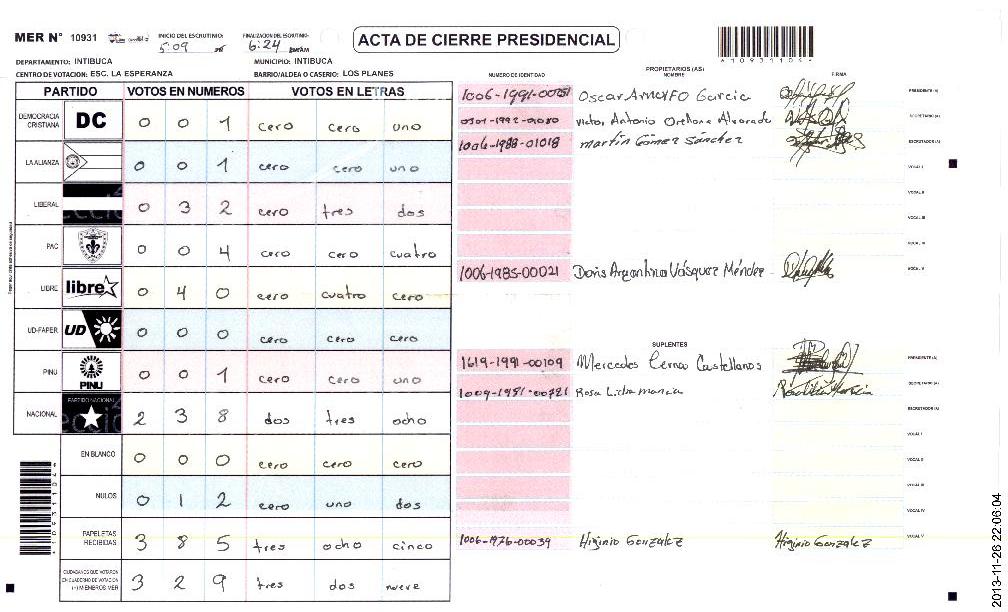 MER N° 10931
INICIO DEL ESCRUTINIO:
5:09 PM
FINALIZACION DEL ESCRUTINIO:
6:24
ACTA DE CIERRE PRESIDENCIAL
DEPARTAMENTO: INTIBUCA
MUNICIPIO: INTIBUCA
CENTRO DE VOTACION: ESC. LA ESPERANZA
BARRIO/ALDEA O CASERIO: LOS PLANES
PARTIDO VOTOS EN NUMEROS VOTOS EN LETRAS
DEMOCRACIA CRISTIANA DC 0 0 1 cero cero uno
LA ALIANZA 0 0 1 cero cero uno
LIBERAL 0 3 2 cero tres dos
PAC 0 0 4 cero cero cuatro
LIBRE libre 0 4 0 cero cuatro cero
UD-FAPER UD 0 0 0 cero cero cero
PINU PINU 0 0 1 cero cero uno
NACIONAL PARTIDO NACIONAL 2 3 8 dos tres ocho
EN BLANCO 0 0 0 cero cero cero
NULOS 0 1 2 cero uno dos
PAPELETAS RECIBIDAS 3 8 5 tres ocho cinco
CIUDADANOS QUE VOTARON EN CUADERNO DE VOTACION (+) MIEMBROS MER 3 2 9 tres dos nueve
PROPIETARIOS (AS)
NUMERO DE IDENTIDAD NOMBRE FIRMA
1006-1991-00051 Oscar Arnolfo Garcia PRESIDENTE (A)
0301-1992-01080 Victor Antonio Orellana Alvarado SECRETARIO (A)
1006-1988-01018 martin Gómez Sánchez ESCRUTADOR (A)
VOCAL I
VOCAL II
VOCAL III
VOCAL IV
1006-1985-00021 Doris Argentina Vásquez Méndez VOCAL V
SUPLENTES
1619-1991-00109 Mercedes Lerna Castellanos PRESIDENTE (A)
1009-1981-00721 Rosa Lidia mancia SECRETARIO (A)
ESCRUTADOR (A)
VOCAL I
VOCAL II
VOCAL III
VOCAL IV
1006-1976-00039 Higinio Gonzalez Higinio Gonzalez VOCAL V
2013-11-26 22:06:04